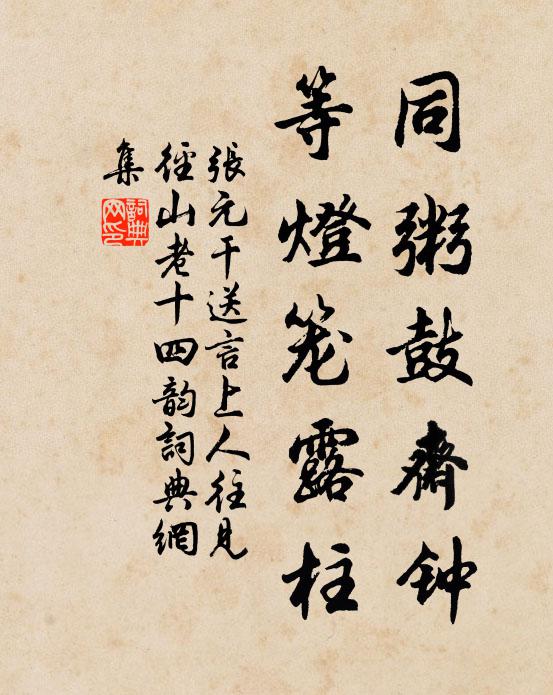 同粥鼓斋钟
等燈笼露柱
張元干送言上人往見
徑山老十四韵詞典網
集
詞典网印